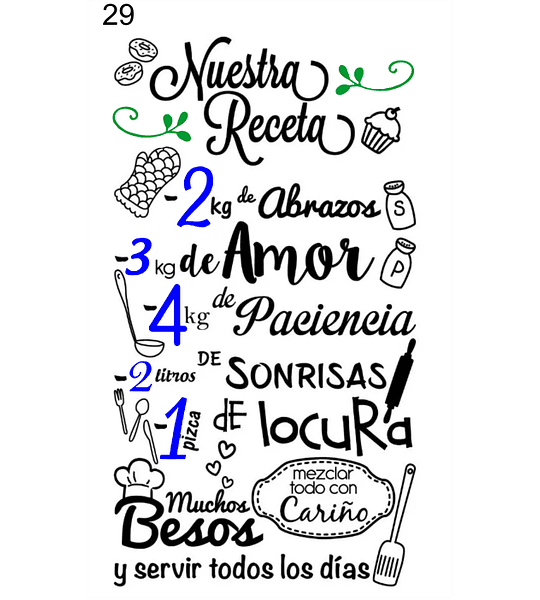 29
Nuestra
Receta
-2 kg de Abrazos
S
-3 kg de Amor
P
-4 kg de Paciencia
-2 litros DE SONRISAS
-1 pizca dE locuRa
mezclar
todo con
Cariño
Muchos
Besos
y servir todos los días